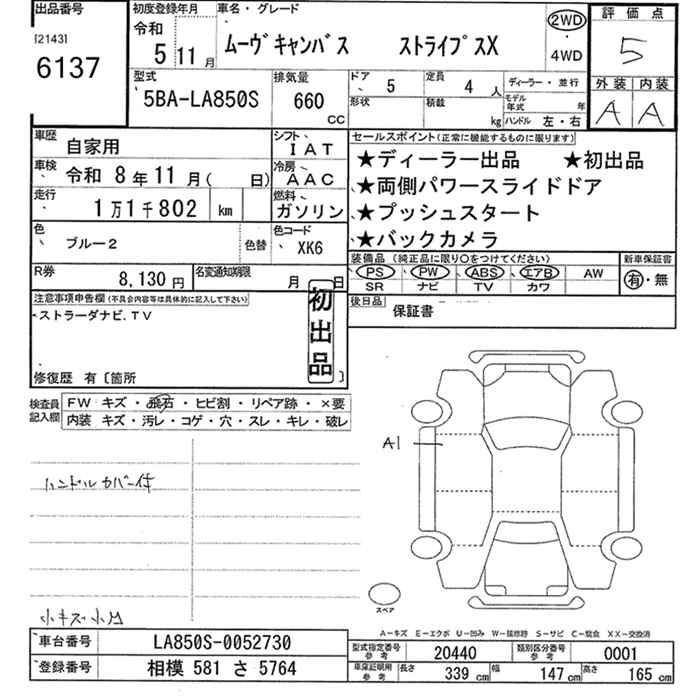 出品番号
[2143]
6137
初度登録年月
令和
5 11 月
車名・グレード
ムーヴキャンバス ストライプスX
2WD
・
4WD
評価点
5
外装 内装
A A
型式
5BA-LA850S
排気量
660
CC
ドア
5
形状
定員
4 人
積載
kg
ディーラー・並行
モデル年式 年
ハンドル 左・右
車歴
自家用
シフト
IAT
車検
令和 8 年 11 月( 日)
冷房
AAC
走行
1万1千802 km
燃料
ガソリン
色
ブルー2
色替
色コード
XK6
R券
8,130 円
名変通知期限
月 日
セールスポイント(正常に機能するものに限ります)
★ディーラー出品 ★初出品
★両側パワースライドドア
★プッシュスタート
★バックカメラ
装備品 (純正品に限り○をつけてください)
PS PW ABS エアB AW
SR ナビ TV カワ
新車保証書
有・無
後日品
保証書
注意事項申告欄(不具合内容等は具体的に記入して下さい)
ストラーダナビ、TV
初出品
修復歴 有〔箇所 〕
検査員記入欄
FW キズ・飛石・ヒビ割・リペア跡・×要
内装 キズ・汚レ・コゲ・穴・スレ・キレ・破レ
ハンドルカバー付
小キズ小凹
A1
スペア
A-キズ E-エクボ U-凹み W-補修跡 S-サビ C-腐食 XX-交換済
車台番号
LA850S-0052730
登録番号
相模 581 さ 5764
型式指定番号 参考
20440
類別区分番号 参考
0001
車庫証明用 参考
長さ 339 cm 幅 147 cm 高さ 165 cm